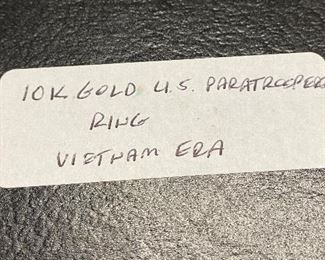 10K GOLD U.S. PARATROOPERS
RING
VIETNAM ERA